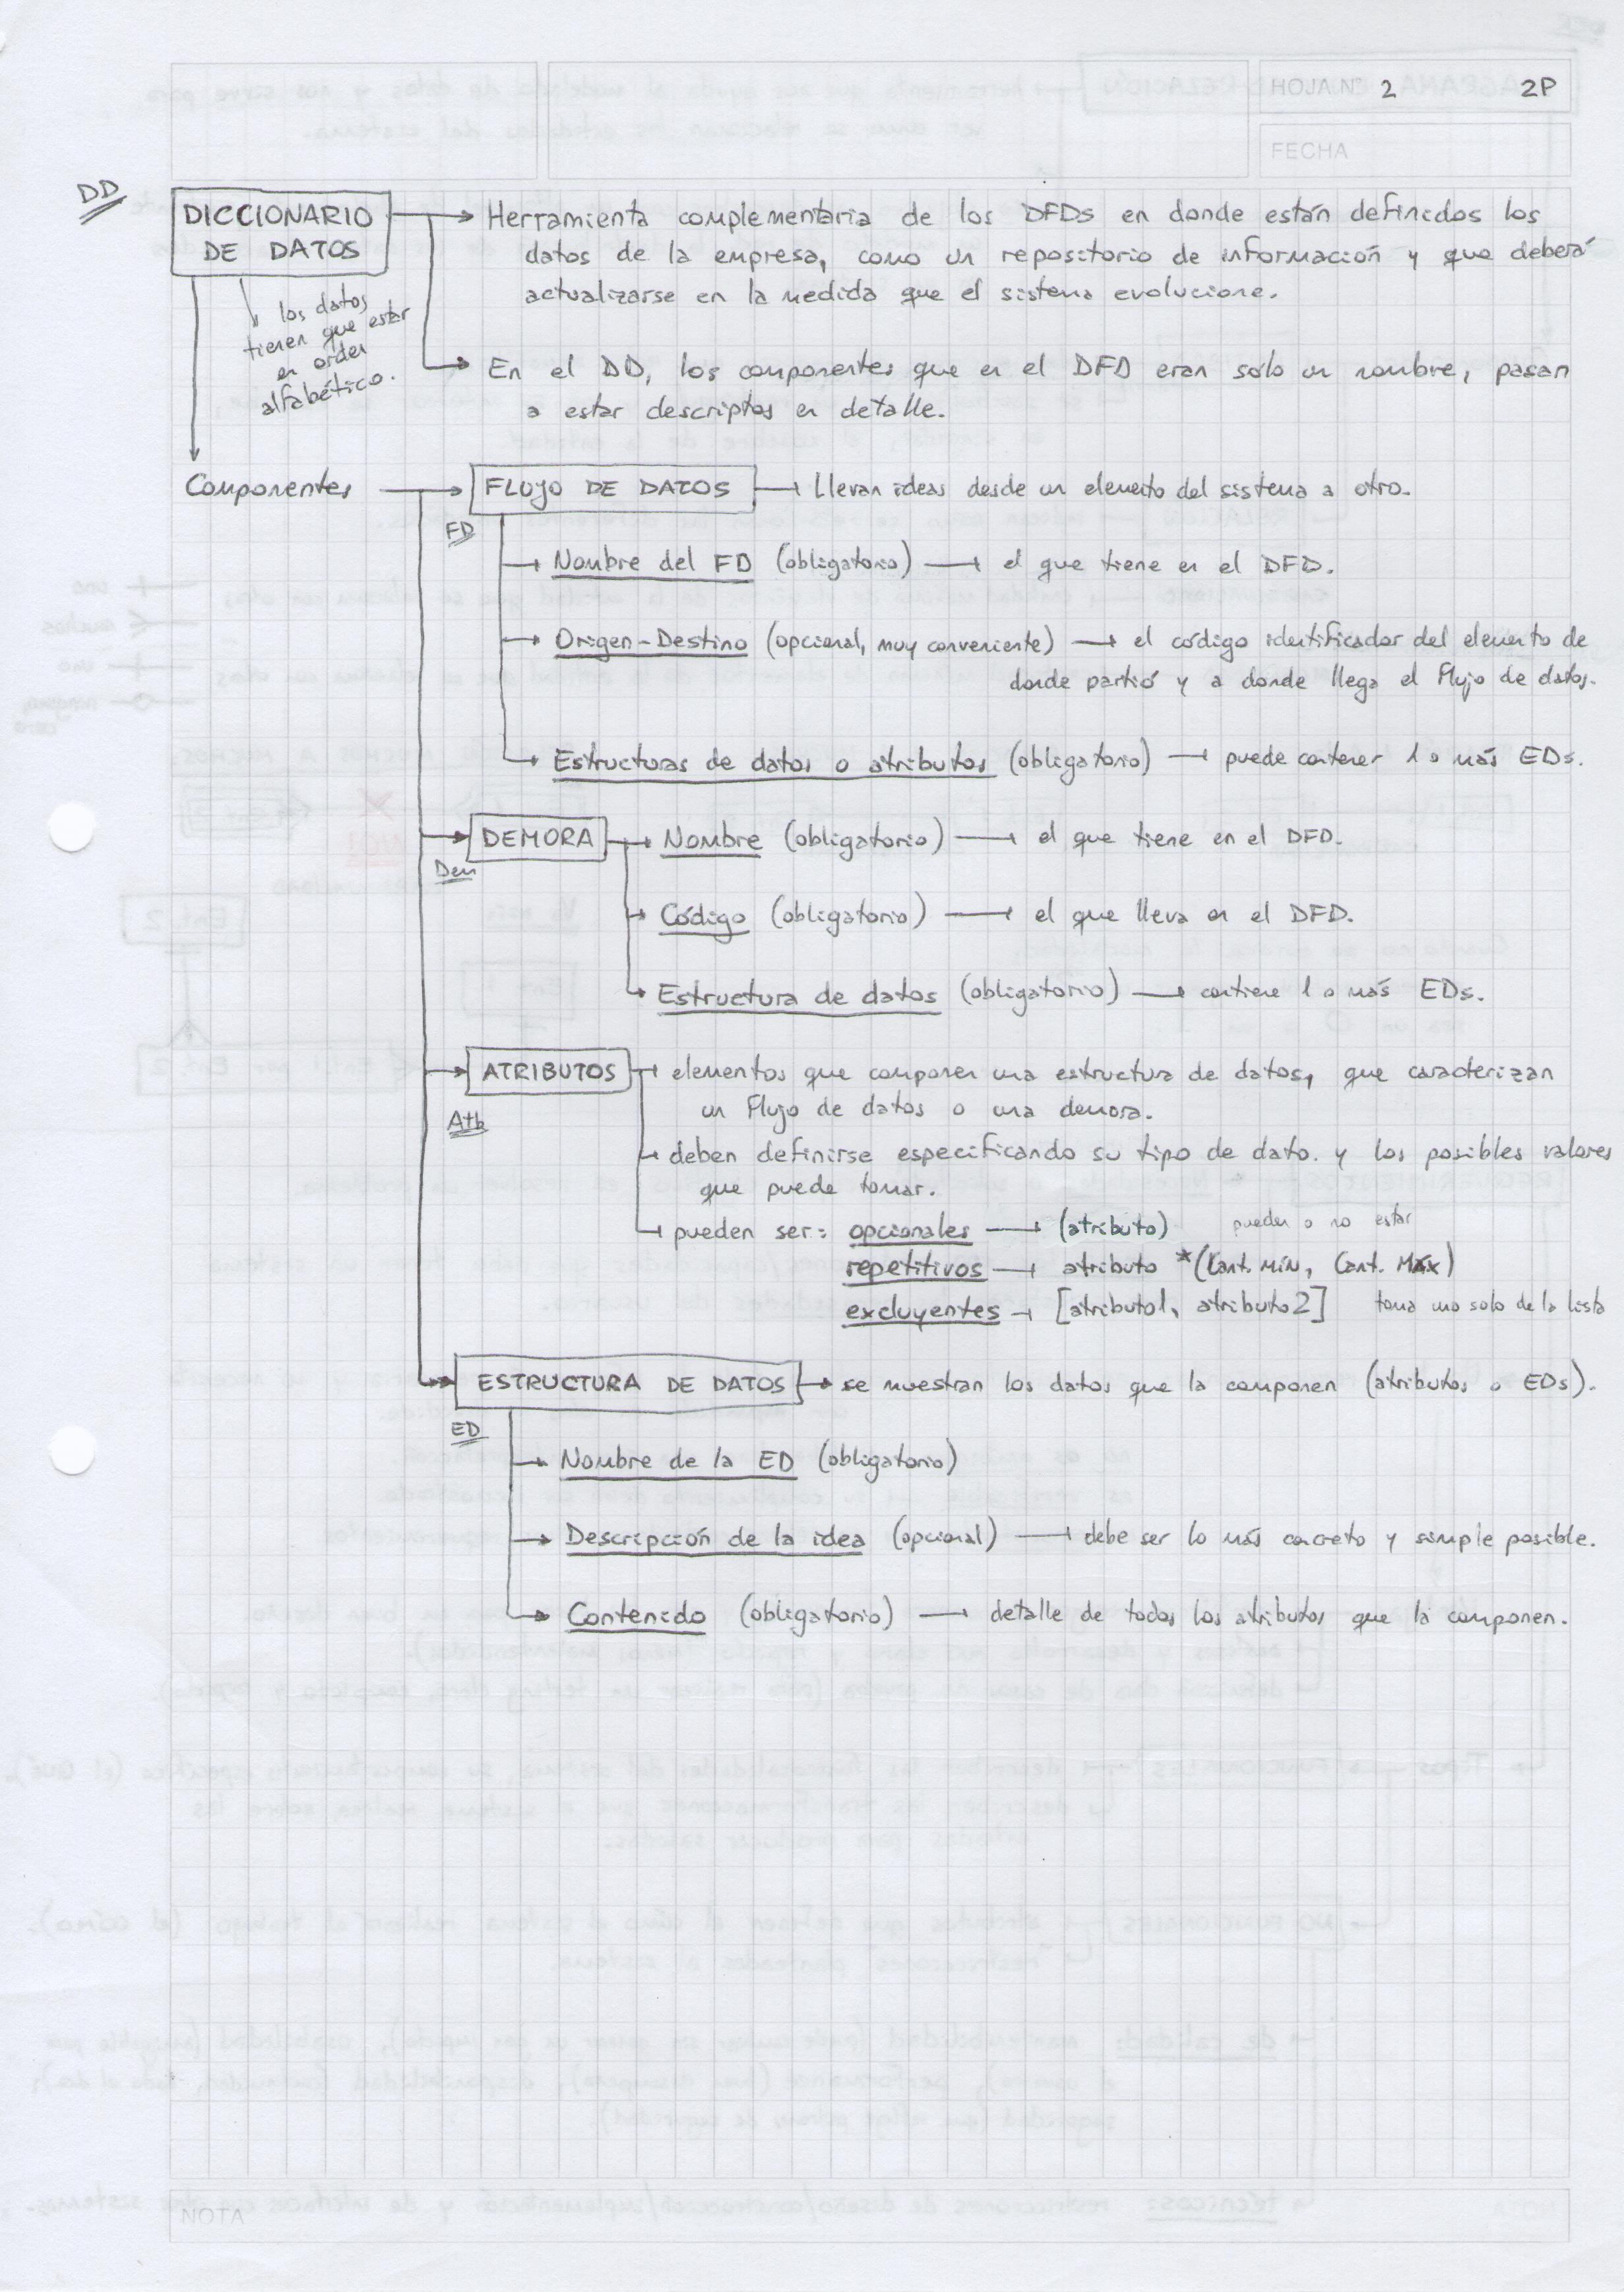 HOJA Nº 2 2P
FECHA
DD
DICCIONARIO
DE DATOS
Herramienta complementaria de los DFDs en donde están definidos los
datos de la empresa, como un repositorio de información y que deberá
actualizarse en la medida que el sistema evolucione.
los datos
tienen que estar
en orden
alfabético.
En el DD, los componentes que en el DFD eran sólo un nombre, pasan
a estar descriptos en detalle.
Componentes
FLUJO DE DATOS
Llevan ideas desde un elemento del sistema a otro.
FD
Nombre del FD (obligatorio) → el que tiene en el DFD.
Origen-Destino (opcional, muy conveniente) → el código identificador del elemento de
donde partió y a donde llega el flujo de datos.
Estructuras de datos o atributos (obligatorio) → puede contener 1 o más EDs.
DEMORA
Nombre (obligatorio) → el que tiene en el DFD.
Dem
Código (obligatorio) → el que lleva en el DFD.
Estructura de datos (obligatorio) → contiene 1 o más EDs.
ATRIBUTOS
elementos que componen una estructura de datos, que caracterizan
un flujo de datos o una demora.
Atb
deben definirse especificando su tipo de dato. y los posibles valores
que puede tomar.
pueden ser: opcionales → (atributo) pueden o no estar
repetitivos → atributo *(Cant. Mín, Cant. Máx)
excluyentes → [atributo1, atributo2] toma uno solo de la lista
ESTRUCTURA DE DATOS
se muestran los datos que la componen (atributos o EDs).
ED
Nombre de la ED (obligatorio)
Descripción de la idea (opcional) → debe ser lo más concreto y simple posible.
Contenido (obligatorio) → detalle de todos los atributos que la componen.
NOTA